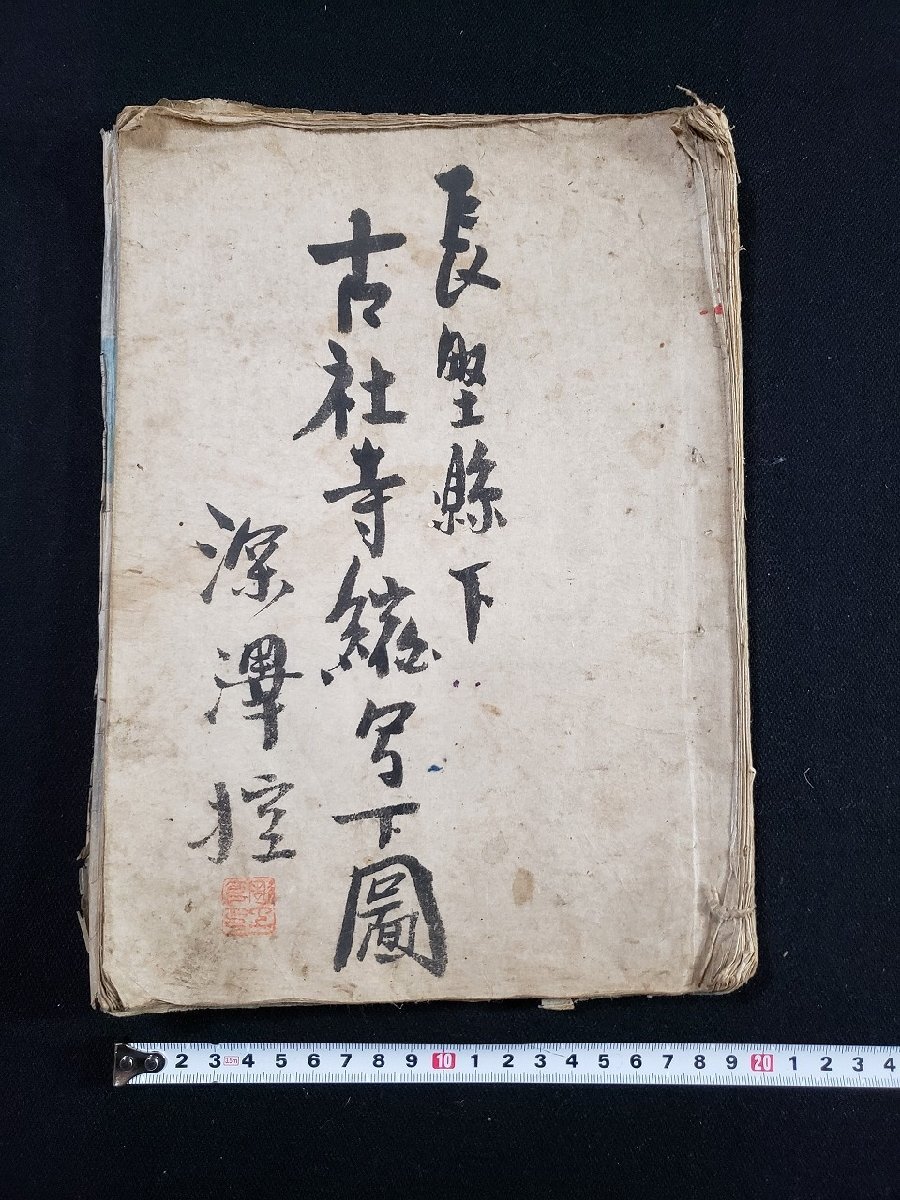 長野縣下
古社寺縮写下圖
深澤控
2 3 3.5m 4 5 6 7 8 9 10 1 2 3 4 5 6 7 8 9 20 1 2 3 4